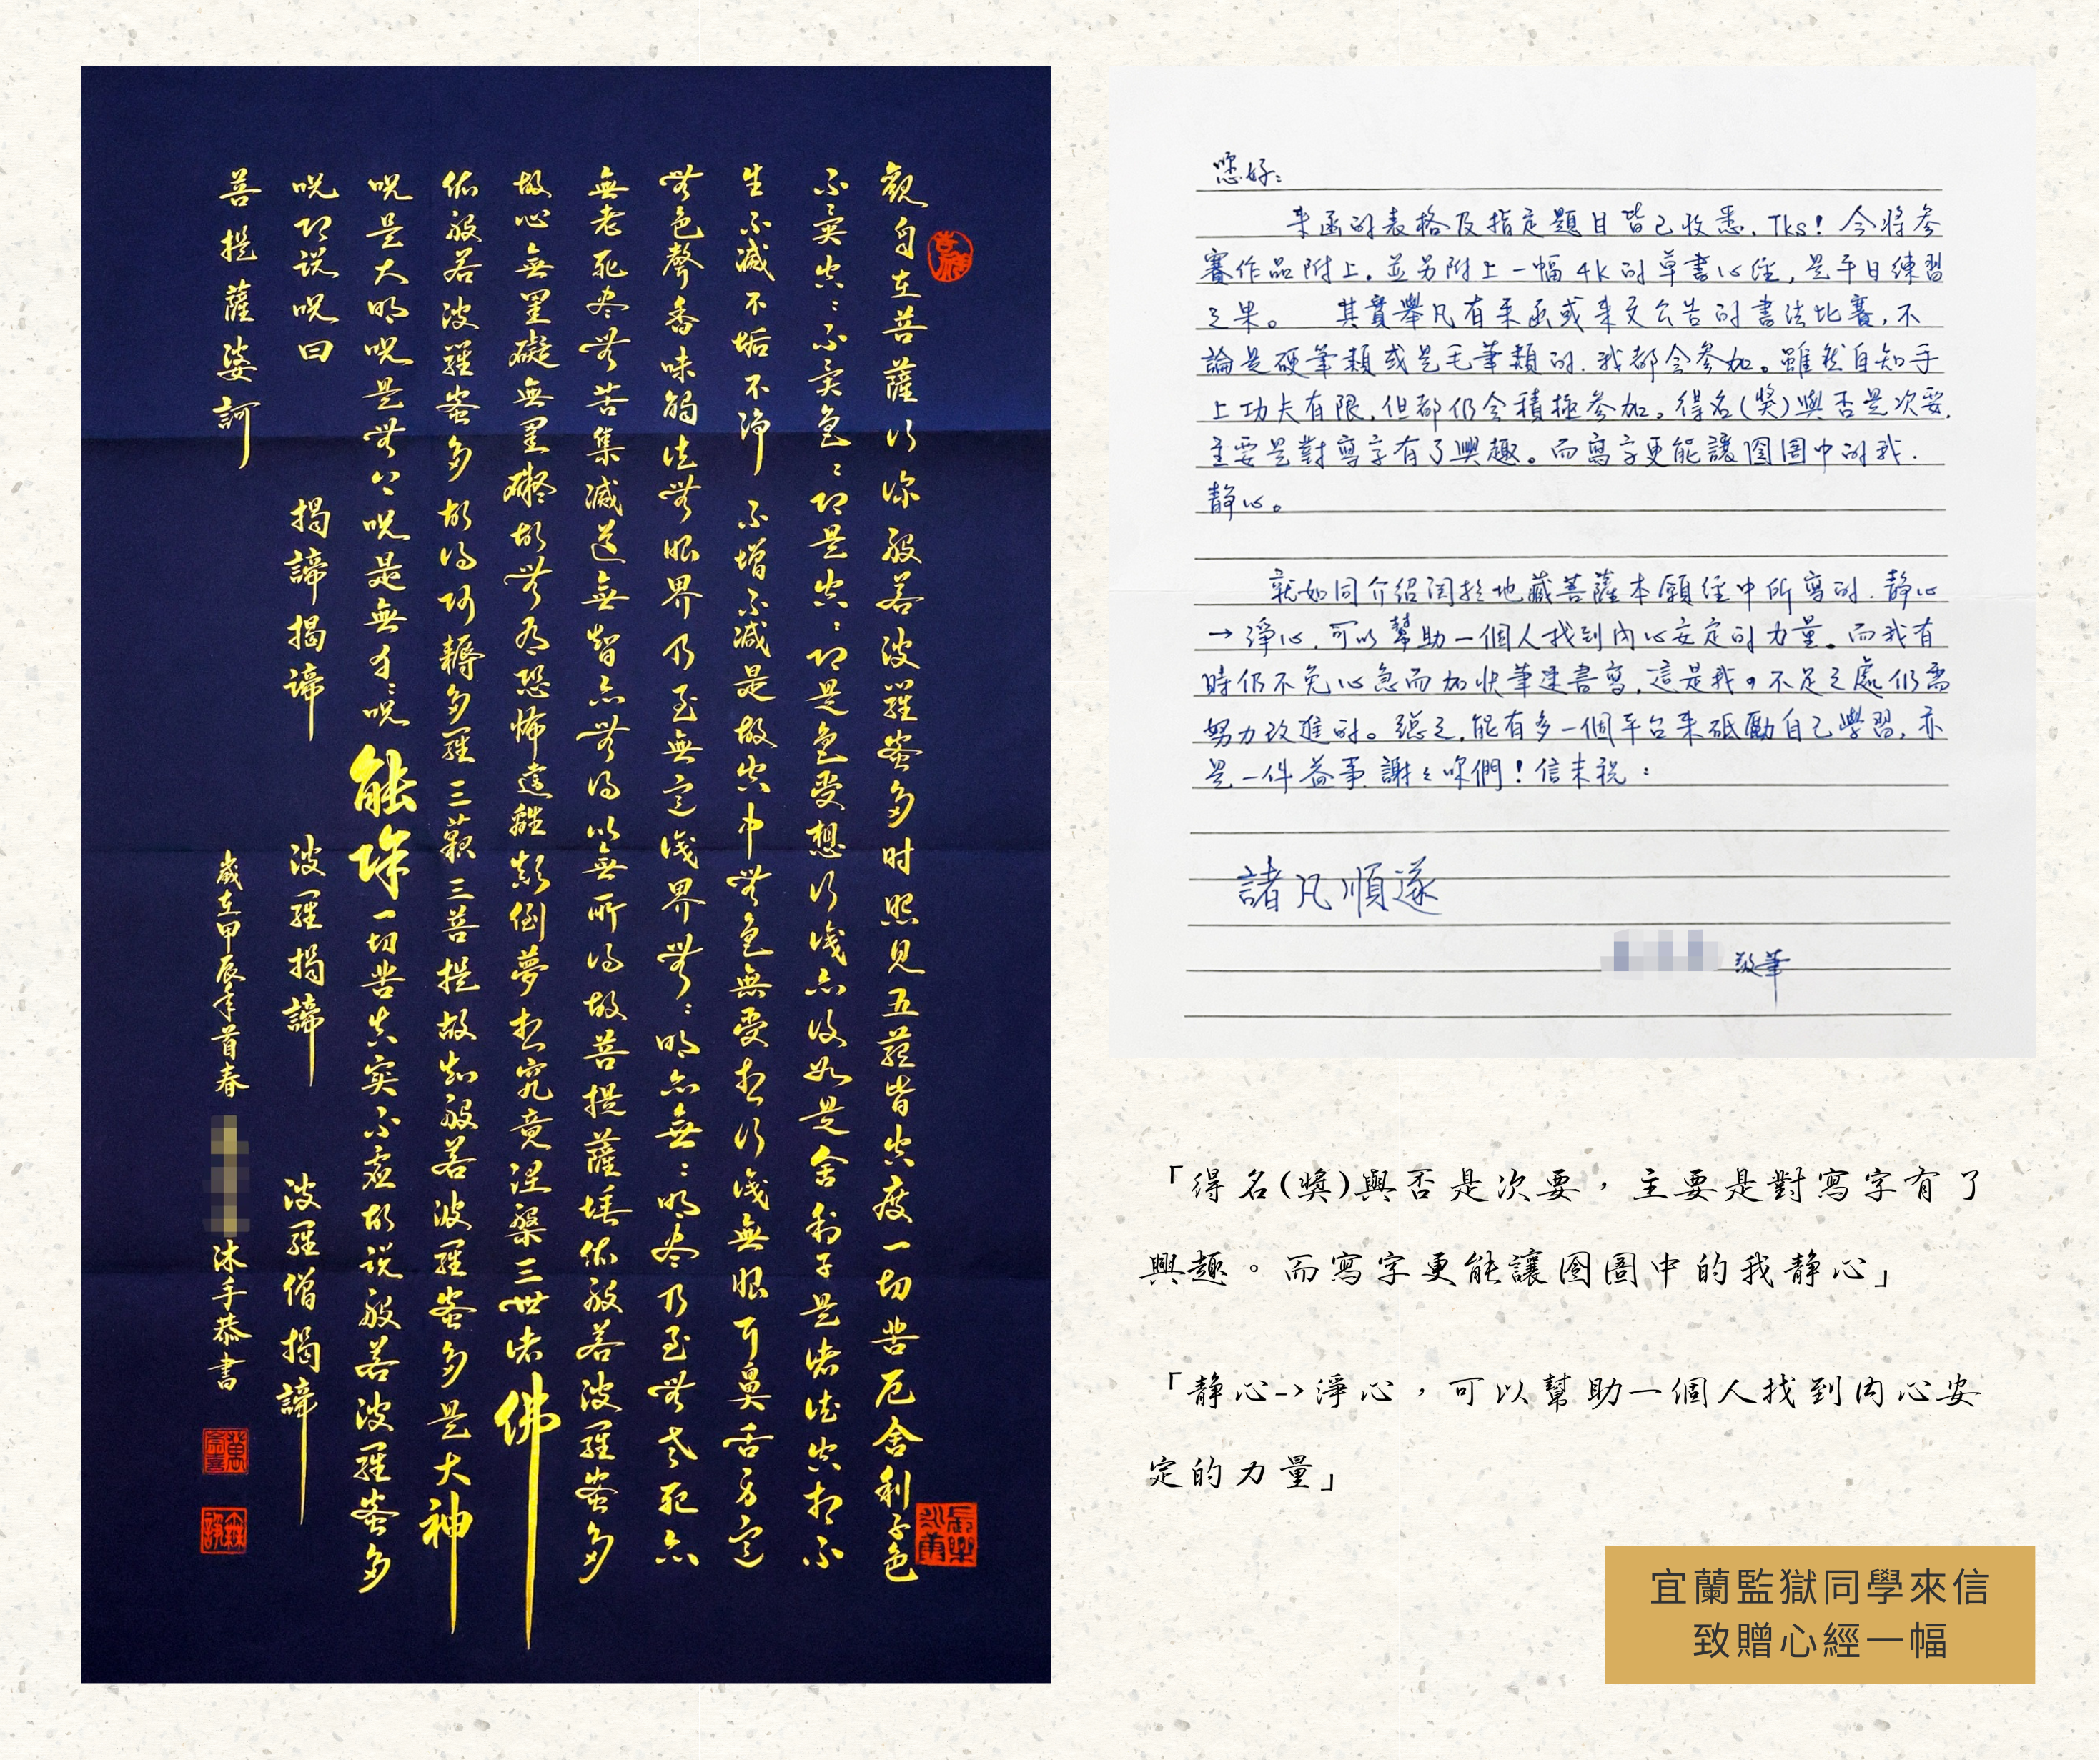 觀自在菩薩行深般若波羅蜜多时照見五蘊皆空度一切苦厄舍利子色
不異空〻不異色〻即是空〻即是色受想行識亦復如是舍利子是諸法空相不
生不滅不垢不淨不增不減是故空中無色無受想行識無眼耳鼻舌身意
無色聲香味觸法無眼界乃至無意識界無〻明亦無〻明盡乃至無老死亦
無老死盡無苦集滅道無智亦無得以無所得故菩提薩埵依般若波羅蜜多
故心無罣礙無罣礙故無有恐怖遠離顛倒夢想究竟涅槃三世諸佛
依般若波羅蜜多故得阿耨多羅三藐三菩提故知般若波羅蜜多是大神
呪是大明呪是無上呪是無等〻呪能除一切苦真實不虛故說般若波羅蜜多
呪即說呪曰 揭諦揭諦 波羅揭諦 波羅僧揭諦
菩提薩婆訶
歲在甲辰年首春 沐手恭書
您好：
來函的表格及指定題目皆已收悉，Tks！今將參
賽作品附上。並另附上一幅4K的草書心經，是平日練習
之果。 其實舉凡有來函或來文公告的書法比賽，不
論是硬筆類或是毛筆類的，我都會參加。雖然自知手
上功夫有限，但都仍會積極參加。得名(獎)與否是次要，
主要是對寫字有了興趣。而寫字更能讓囹圄中的我，
靜心。
就如同介紹関於地藏菩薩本願經中所寫的，靜心
→淨心，可以幫助一個人找到內心安定的力量。而我有
時仍不免心急而加快筆速書寫，這是我，不足之處仍需
努力改進的。總之，能有多一個平台來砥勵自己學習，亦
是一件益事，謝〻你們！信末祝：
諸凡順遂
敬筆
「得名(獎)與否是次要，主要是對寫字有了
興趣。而寫字更能讓囹圄中的我靜心」
「靜心->淨心，可以幫助一個人找到內心安
定的力量」
宜蘭監獄同學來信
致贈心經一幅